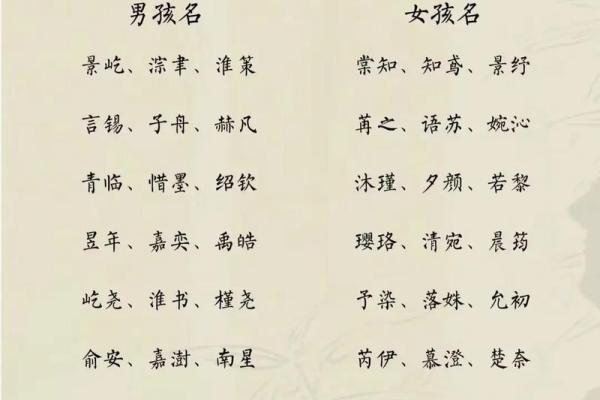 男孩名
景屹、淙聿、淮策
言锡、子舟、赫凡
青临、惜墨、绍钦
昱年、嘉奕、禹皓
屹尧、淮书、槿尧
俞安、嘉澍、南星
女孩名
棠知、知鸢、景纾
苒之、语苏、婉沁
沐瑾、夕颜、若黎
璎珞、清宛、晨筠
予染、落姝、允初
芮伊、慕澄、楚奈